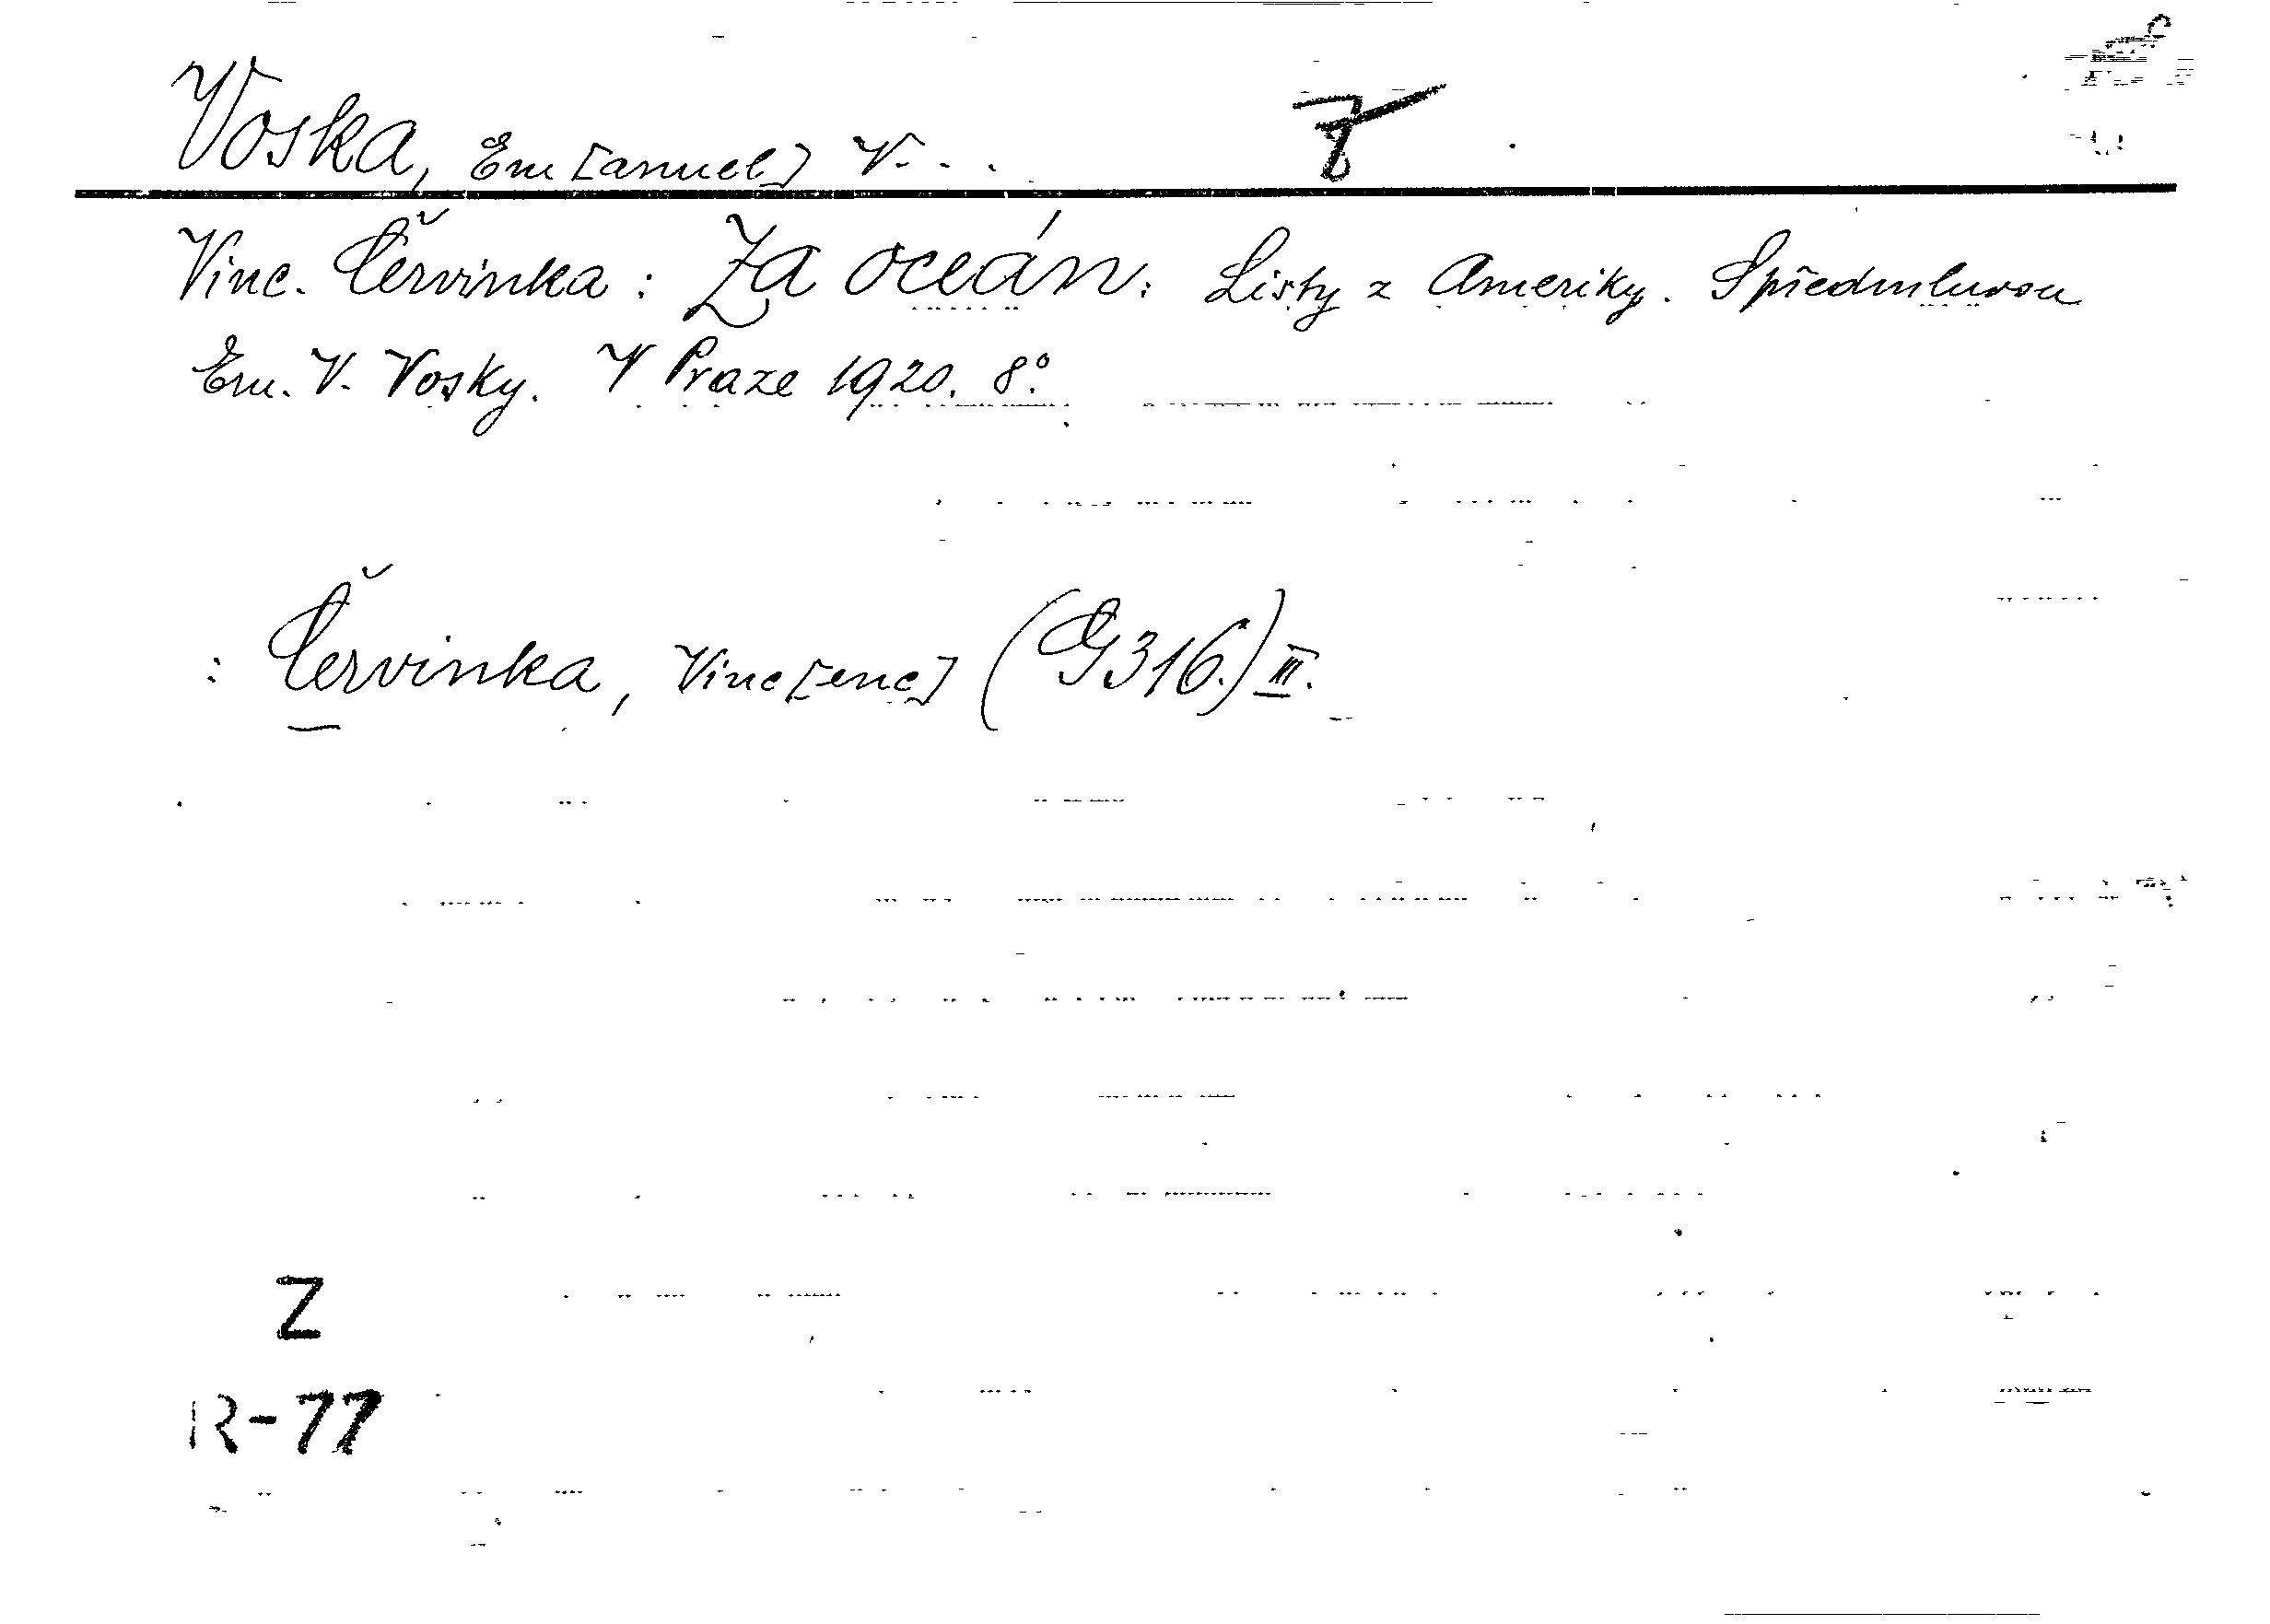 Voska, Em[anuel] V...
Vinc. Červinka: Za oceán: Listy z Ameriky. S předmluvou
Em. V. Vosky. V Praze 1920. 8°.
: Červinka, Vinc[enc] (G316.) III.
Z
R-77